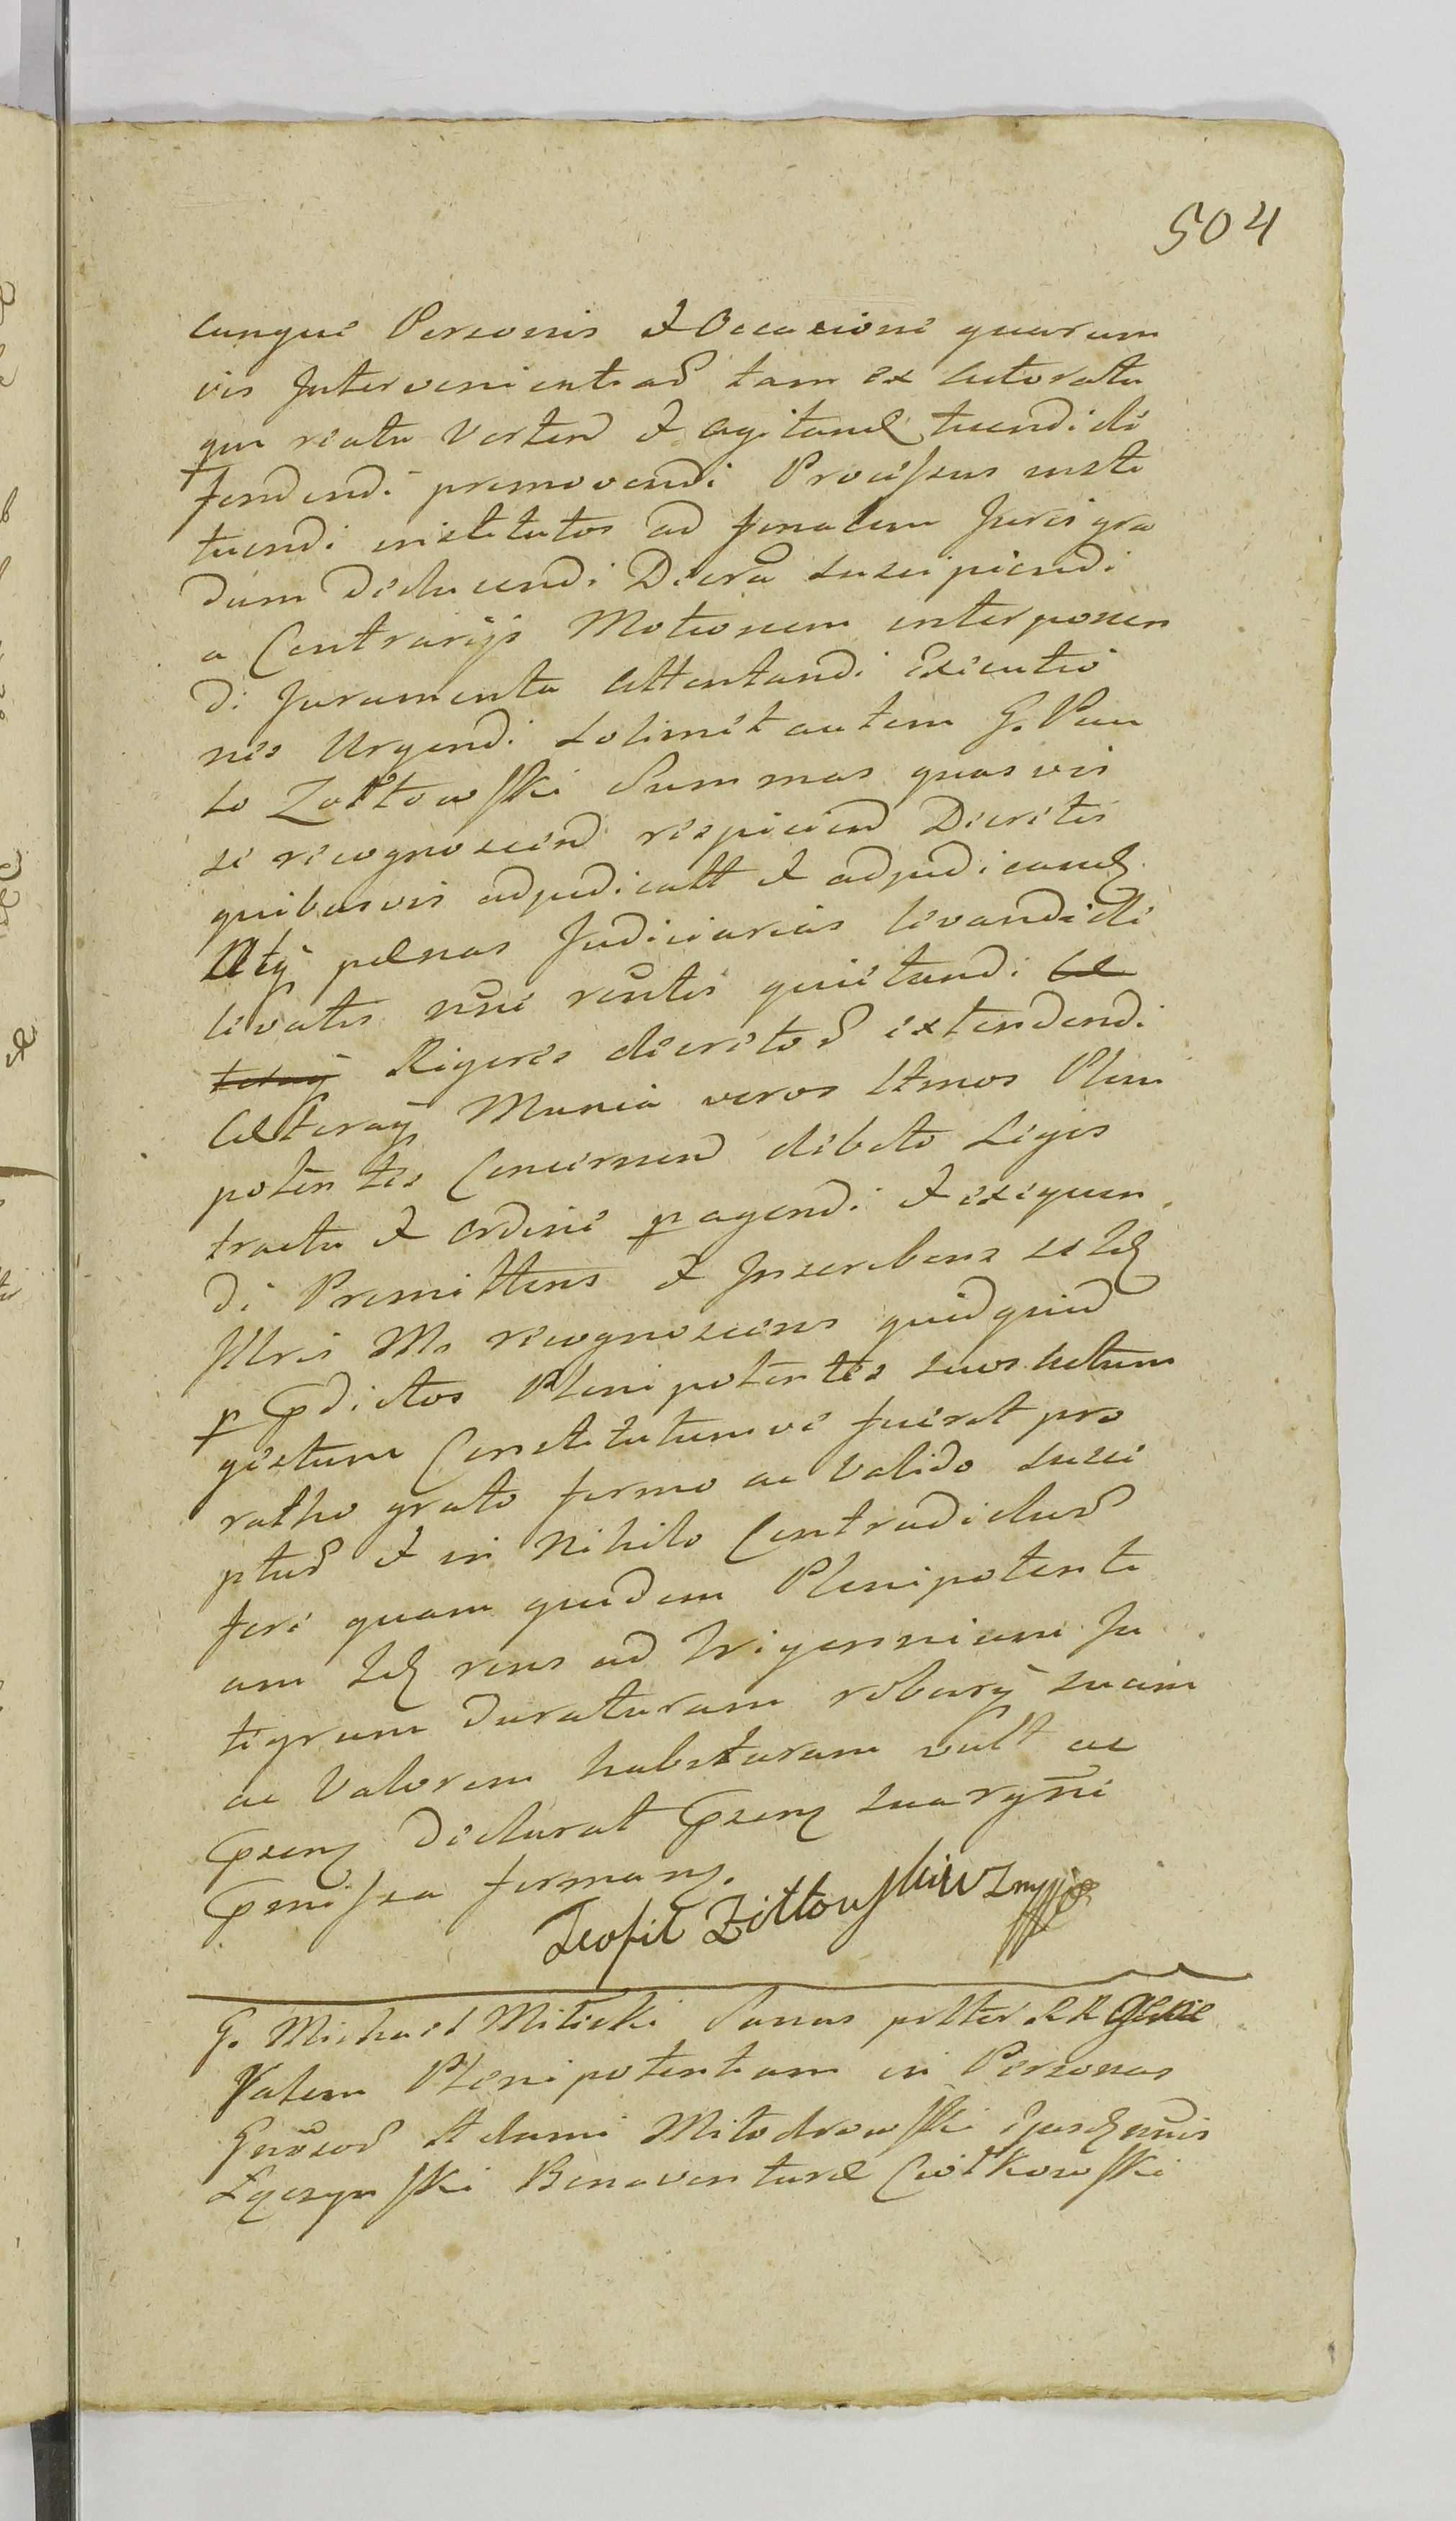 504
cunque Personis et Occasione quarum
vis Intervenientiad tam ex Actoratu
qm reatu Vertend et agitand tuendi de
fendendi promovendi Processus insti
tuendi institutos ad finalem Juris gra
dum Deducendi Decra suscipiendi
a Contrarijs Motionem interponen
di Juramenta Attentandi Executio
nes Urgendi solimet autem G. Pau
lo Zołtowski Summas quasvis
se recognoscend respiciend Decretis
quibusvis adjudicatt et adjudicand
Atq pœnas Judiciarias levandi de
levatis nõe rentis quietandi
Rigores decretod extendendi
Cæteraq Munia veros Ltmos Pleni
potentes Concernend debito Legis
tractu et ordine pagendi et exequen
di Promittens et Inscribens se
Idq recognoscens quidquid
p pdictos Plenipotentes suos Actum
gestum Constitutumve fuerit pro
ratho grato firmo ac Valido susce
pturd et in Nihilo Contradictur
fore quam quidem Plenipotenti
am Idq rens ad Trigennium In
tegrum Duraturam roburq suum
ac Valorem habituram vult ac
psenq declarat psenq suarq
pmissa firmans.
Teofil Zółtowski
G. Michael Milicki Sanus pltter RR Gene
ralem Plenipotentiam in Personas
Gnrsod Adami Mitodrowski
Lączynski Bonaventuræ Ciołkowski